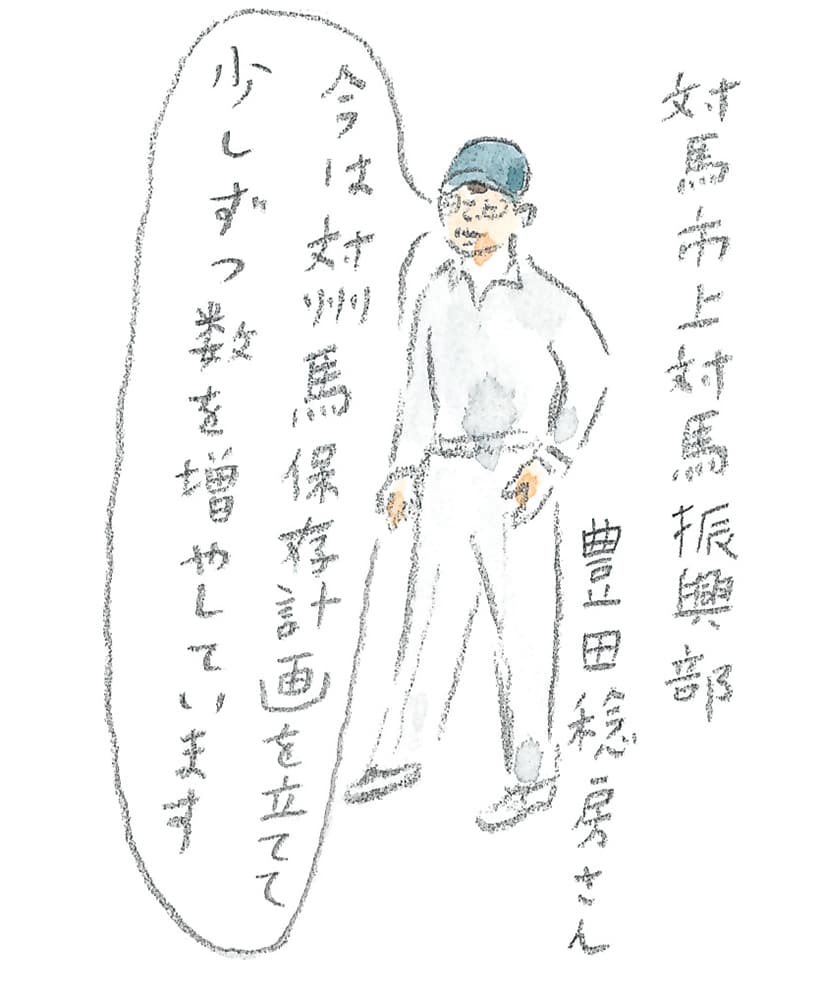 対馬市上対馬振興部
豊田穏房さん
今は対州馬保存計画を立てて
少しずつ数を増やしています